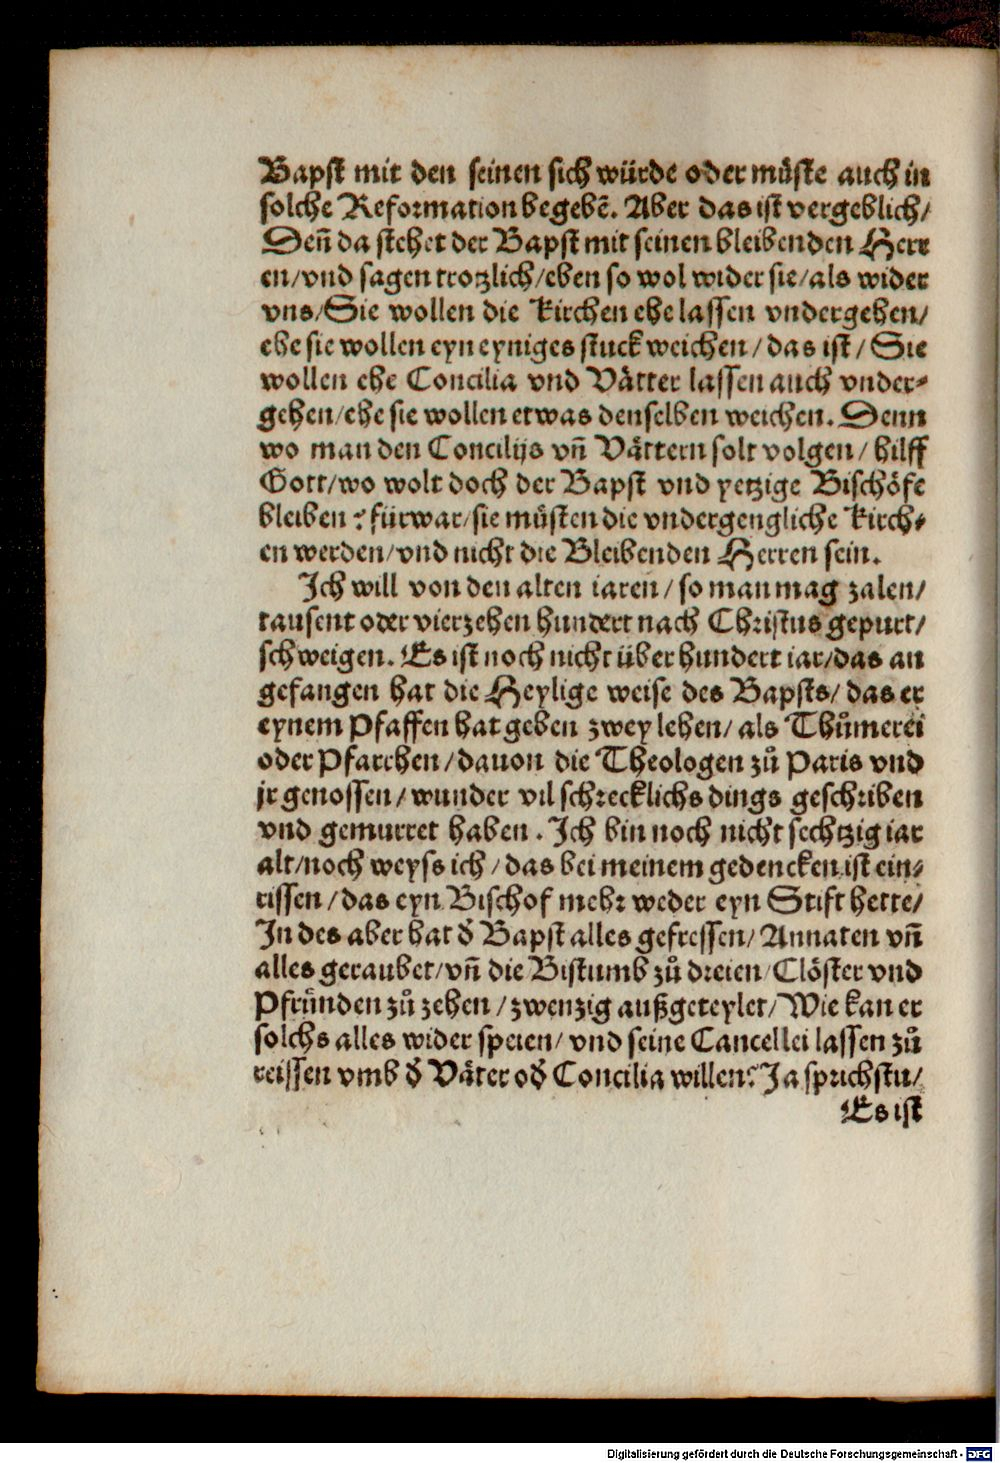 Bapst mit den seinen sich würde oder můste auch in
solche Reformation begebẽ. Aber das ist vergeblich/
Deñ da stehet der Bapst mit seinen bleibenden Herr
en/vnd sagen trotzlich/eben so wol wider sie/als wider
vns/Sie wollen die kirchen ehe lassen vndergehen/
ehe sie wollen eyn eyniges stuck weichen/das ist/Sie
wollen ehe Concilia vnd Vätter lassen auch vnder-
gehen/ehe sie wollen etwas denselben weichen. Denn
wo man den Concilijs vñ Vättern solt volgen/hilff
Gott/wo wolt doch der Bapst vnd yetzige Bischöfe
bleiben? fürwar/sie müsten die vndergengliche kirch-
en werden/vnd nicht die Bleibenden Herren sein.
Ich will von den alten iaren/so man mag zalen/
tausent oder vierzehen hundert nach Christus gepurt/
schweigen. Es ist noch nicht über hundert iar/das an
gefangen hat die Heylige weise des Bapsts/das er
eynem Pfaffen hat geben zwey lehen/als Thůmerei
oder Pfarrhen/dauon die Theologen zů Paris vnd
jr genossen/wunder vil schrecklichs dings geschriben
vnd gemurret haben. Ich bin noch nicht sechtzig iar
alt/noch weyss ich/das bei meinem gedencken ist ein-
rissen/das eyn Bischof mehr weder eyn Stift hette/
In des aber hat d̕ Bapst alles gefressen/Annaten vñ
alles geraubet/vñ die Bistumb zů dreien/Clöster vnd
Pfründen zů zehen/zwenzig außgeteylet/Wie kan er
solchs alles wider speien/vnd seine Cancellei lassen zů
reissen vmb d̕ Väter od̕ Concilia willen? Ja sprichstu/
Es ist
Digitalisierung gefördert durch die Deutsche Forschungsgemeinschaft - DFG